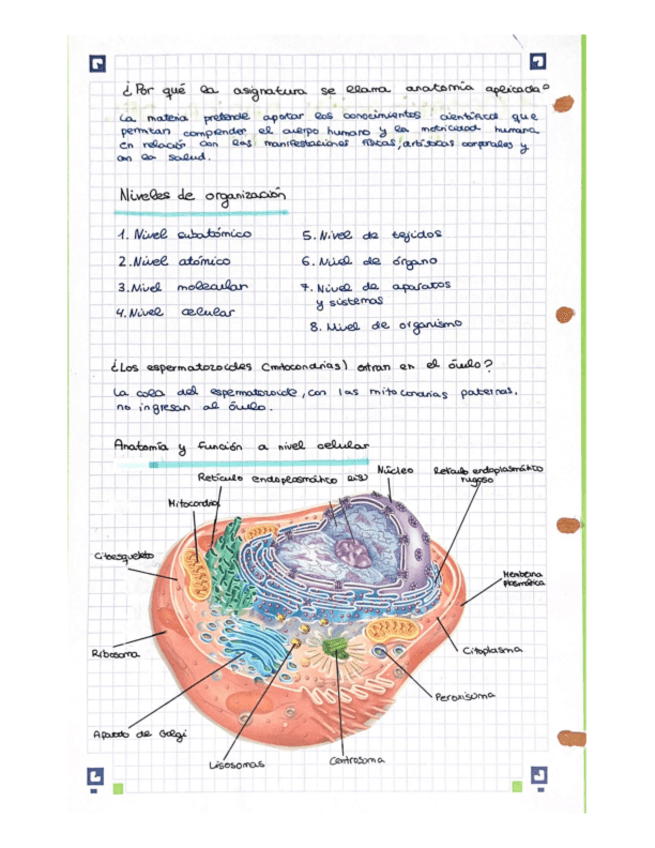 ¿Por qué la asignatura se llama anatomía aplicada?
La materia pretende aportar los conocimientos científicos que
permitan comprender el cuerpo humano y la motricidad humana
en relación con las manifestaciones físicas, artísticas corporales y
con la salud.
Niveles de organización
1. Nivel subatómico
2. Nivel atómico
3. Nivel molecular
4. Nivel celular
5. Nivel de tejidos
6. Nivel de órgano
7. Nivel de aparatos
y sistemas
8. Nivel de organismo
¿Los espermatozoides (mitocondrias) entran en el óvulo?
La cola del espermatozoide, con las mitocondrias paternas,
no ingresan al óvulo.
Anatomía y función a nivel celular
Retículo endoplasmático liso
Núcleo
Retículo endoplasmático
rugoso
Mitocondria
Citoesqueleto
Membrana
plasmática
Ribosoma
Citoplasma
Peroxisoma
Aparato de Golgi
Lisosomas
Centrosoma